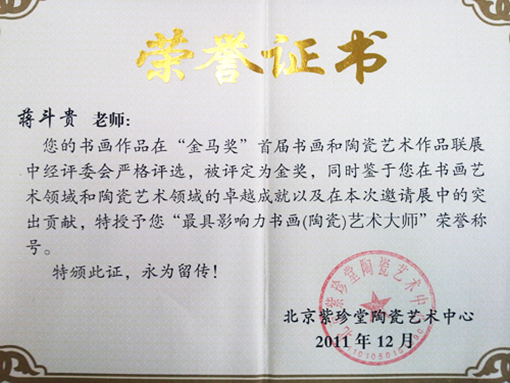 荣誉证书
蒋斗贵 老师:
您的书画作品在“金马奖”首届书画和陶瓷艺术作品联展
中经评委会严格评选，被评定为金奖，同时鉴于您在书画艺
术领域和陶瓷艺术领域的卓越成就以及在本次邀请展中的突
出贡献，特授予您“最具影响力书画(陶瓷)艺术大师”荣誉称
号。
特颁此证，永为留传！
北京紫珍堂陶瓷艺术中心
北京紫珍堂陶瓷艺术中心
2011年12月